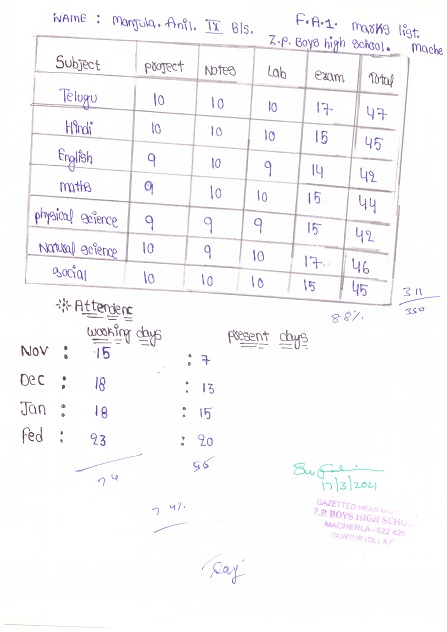 NAME : manjula. Anil. IX Bls. F.A.1. marks list.
Z.P. Boys high school. mache
Subject project Notes Lab exam Total
Telugu 10 10 10 17 47
Hindi 10 10 10 15 45
English 9 10 9 14 42
maths 9 10 10 15 44
physical science 9 9 9 15 42
Natural science 10 9 10 17 46
social 10 10 10 15 45
311
350
88%
Attendenc
working days present days
Nov : 15 : 7
Dec : 18 : 13
Jan : 18 : 15
Fed : 23 : 20
74 55
74%
17/3/2021
GAZETTED HEAD
Z.P. BOYS HIGH SCHO
MACHERLA - 522 426
GUNTUR (Dt.) A.P